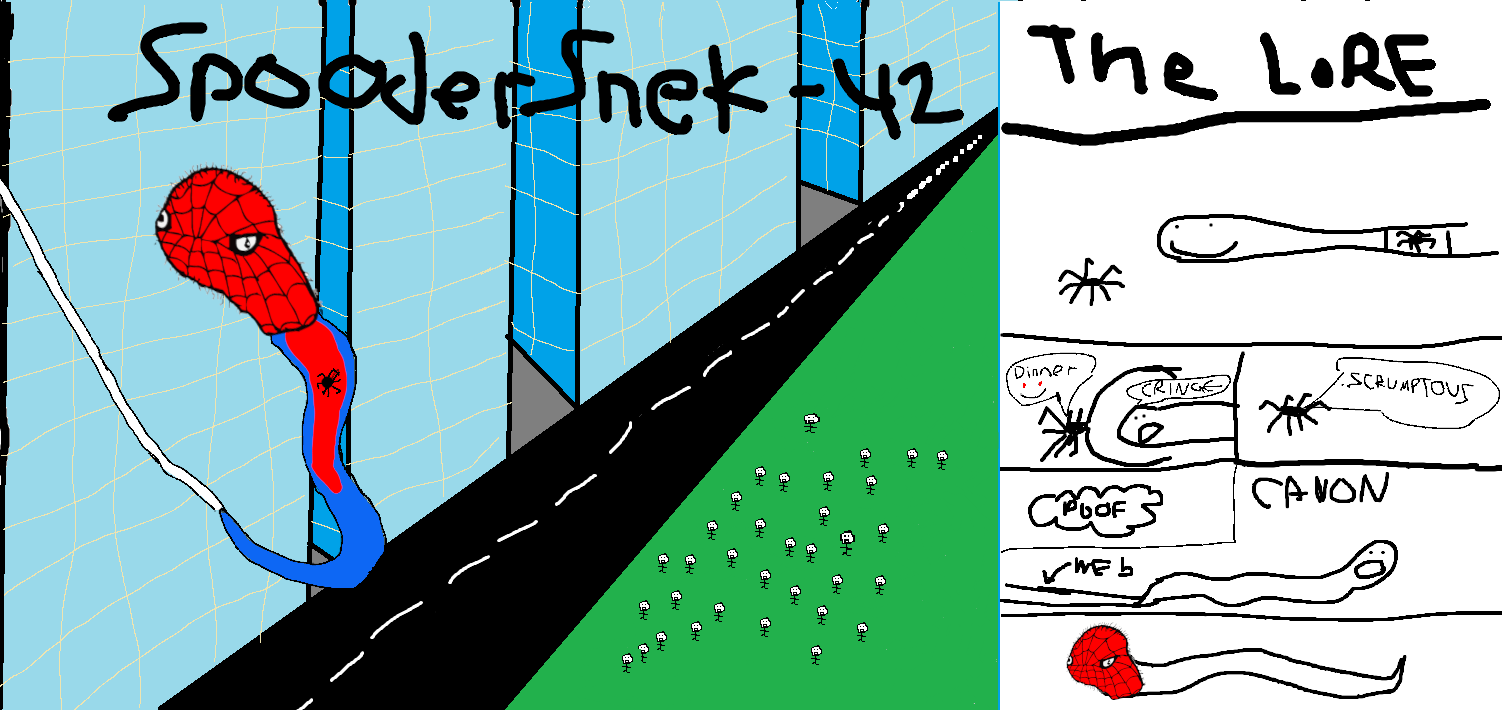 SpooderSnek-42
The LoRE
Dinner
CRINGE
SCRUMPTOUS
POOF
CANON
WEb